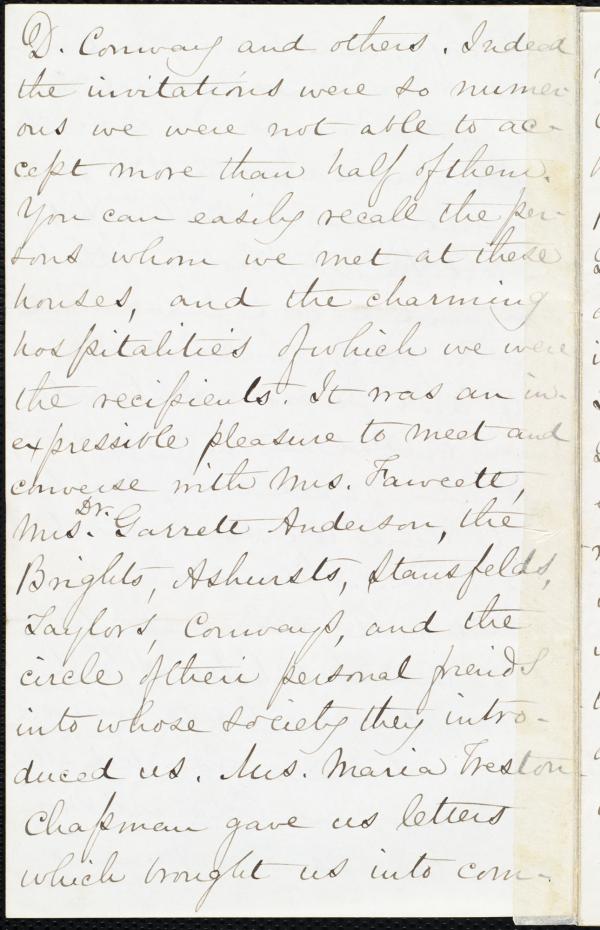 D. Conway and others. Indeed
the invitations were so numer-
ous we were not able to ac-
cept more than half of them.
You can easily recall the per-
sons whom we met at these
houses, and the charming
hospitalities of which we were
the recipients. It was an in-
expressible pleasure to meet and
converse with Mrs. Fawcett,
Mrs. Dr. Garrett Anderson, the
Brights, Ashursts, Stansfelds,
Taylors, Conways, and the
circle of their personal friends
into whose society they intro-
duced us. Mrs. Maria Weston
Chapman gave us letters
which brought us into com-